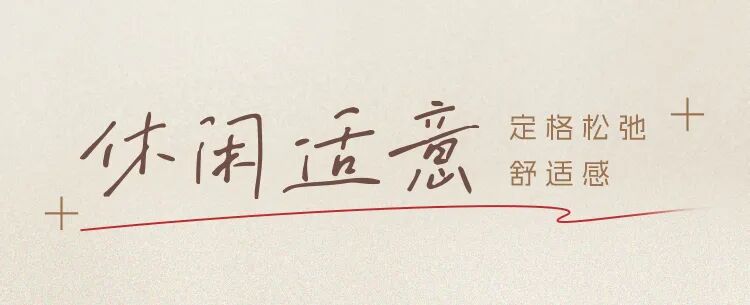 休闲适意
定格松弛
舒适感